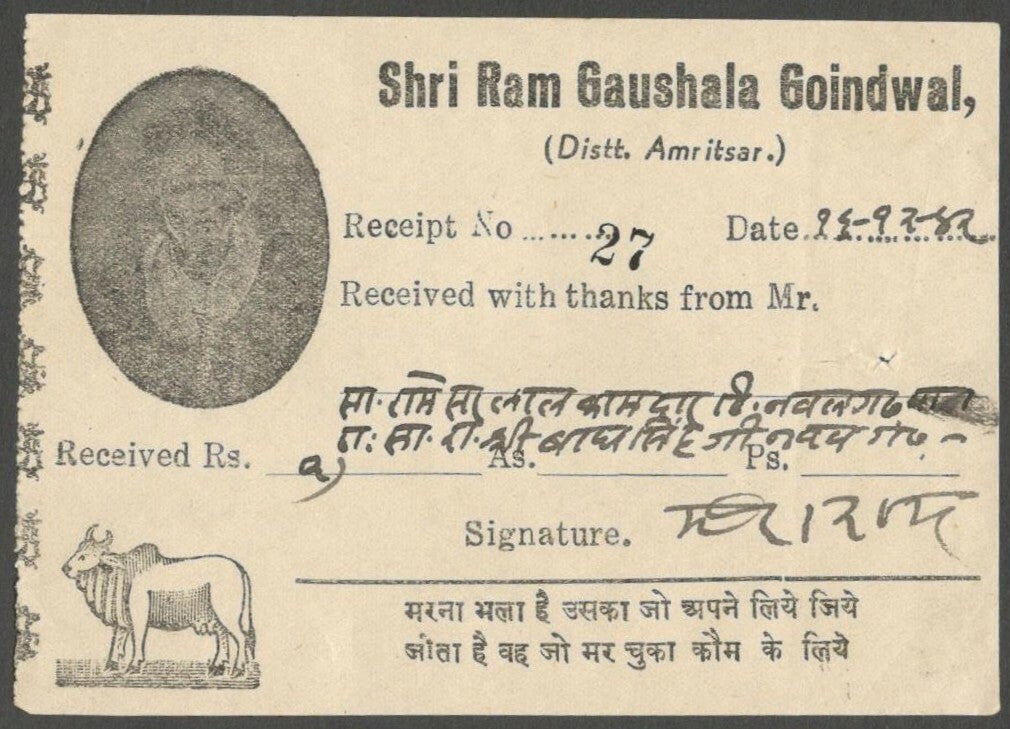 Shri Ram Gaushala Goindwal,
(Distt. Amritsar.)
Receipt No ........ 27 Date १६-१२-४२
Received with thanks from Mr.
लाल कामदार ठि. नवलगढ
सा. श्री बाघसिंह जी नवलगढ -
Received Rs. As. Ps.
Signature.
मरना भला है उसका जो अपने लिये जिये
जीता है वह जो मर चुका कौम के लिये